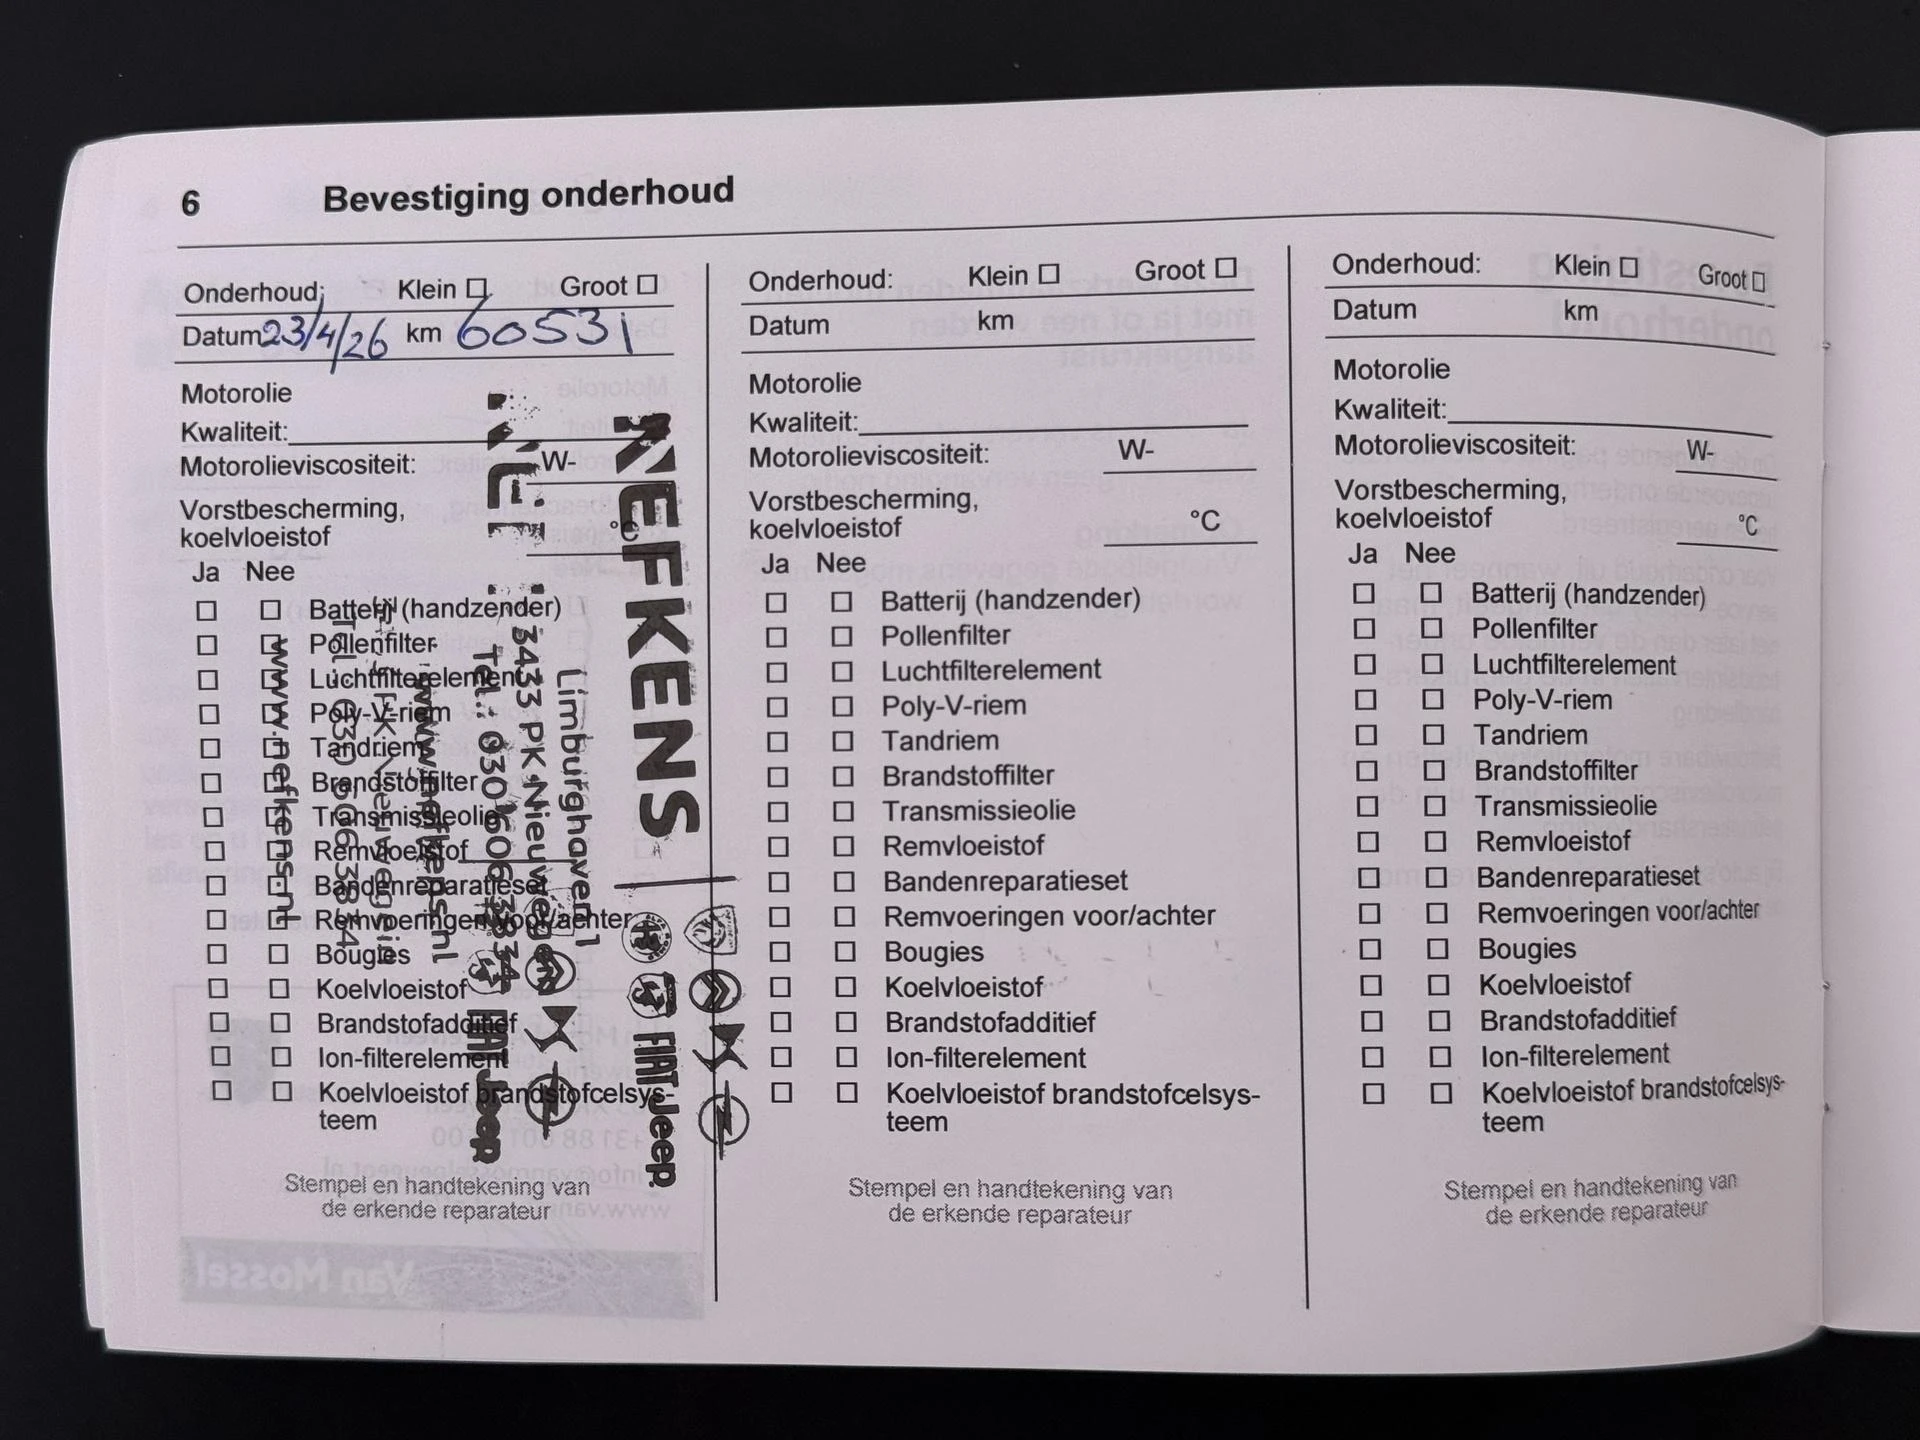 6 Bevestiging onderhoud
Onderhoud: Klein Groot
Datum 23/4/26 km 60531
Motorolie
Kwaliteit:
Motorolieviscositeit: W-
Vorstbescherming,
koelvloeistof °C
Ja Nee
Batterij (handzender)
Pollenfilter
Luchtfilterelement
Poly-V-riem
Tandriem
Brandstoffilter
Transmissieolie
Remvloeistof
Bandenreparatieset
Remvoeringen voor/achter
Bougies
Koelvloeistof
Brandstofadditief
Ion-filterelement
Koelvloeistof brandstofcelsys-
teem
Stempel en handtekening van
de erkende reparateur
NEFKENS
Limburghaven 1
3433 PK Nieuwegein
Tel.: 030 606 3834
www.nefkens.nl
www.nefkens.nl
FIAT Jeep
FIAT Jeep
Onderhoud: Klein Groot
Datum km
Motorolie
Kwaliteit:
Motorolieviscositeit: W-
Vorstbescherming,
koelvloeistof °C
Ja Nee
Batterij (handzender)
Pollenfilter
Luchtfilterelement
Poly-V-riem
Tandriem
Brandstoffilter
Transmissieolie
Remvloeistof
Bandenreparatieset
Remvoeringen voor/achter
Bougies
Koelvloeistof
Brandstofadditief
Ion-filterelement
Koelvloeistof brandstofcelsys-
teem
Stempel en handtekening van
de erkende reparateur
Onderhoud: Klein Groot
Datum km
Motorolie
Kwaliteit:
Motorolieviscositeit: W-
Vorstbescherming,
koelvloeistof °C
Ja Nee
Batterij (handzender)
Pollenfilter
Luchtfilterelement
Poly-V-riem
Tandriem
Brandstoffilter
Transmissieolie
Remvloeistof
Bandenreparatieset
Remvoeringen voor/achter
Bougies
Koelvloeistof
Brandstofadditief
Ion-filterelement
Koelvloeistof brandstofcelsys-
teem
Stempel en handtekening van
de erkende reparateur